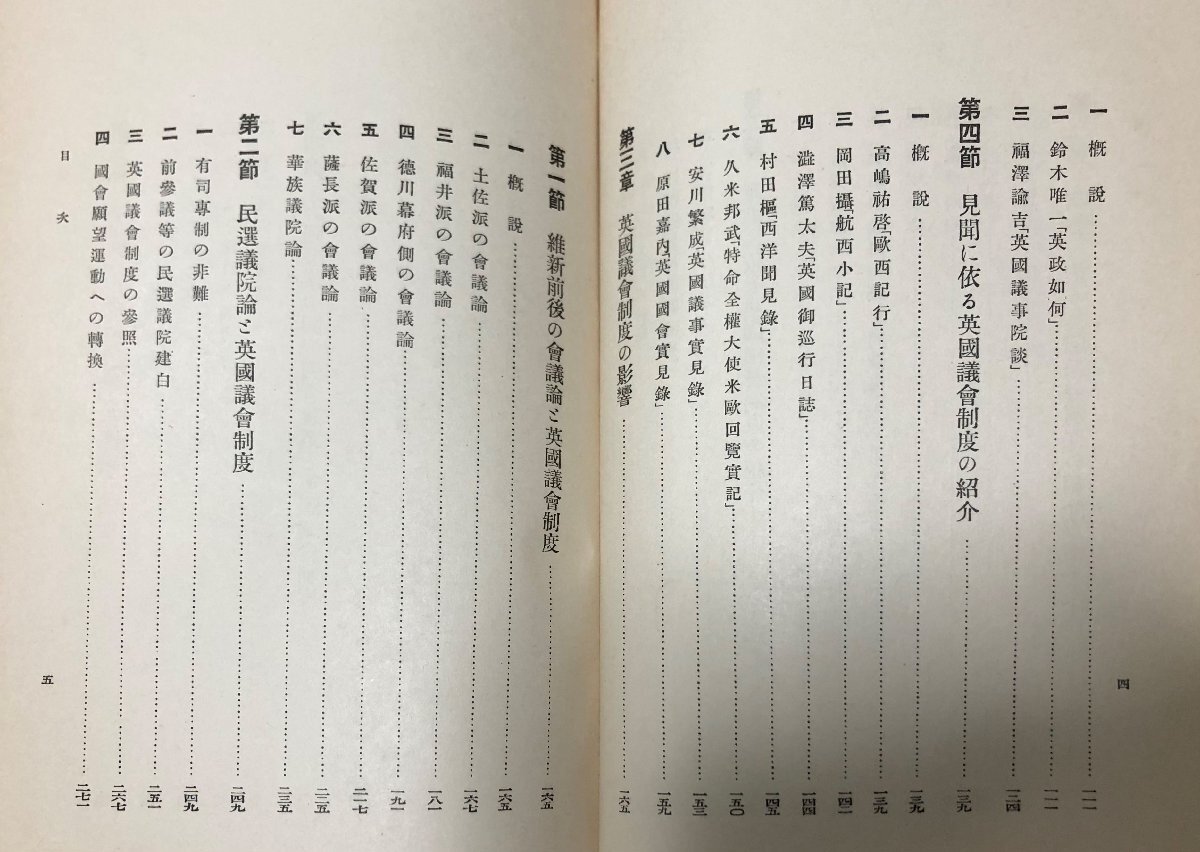 一 概 說……一一一
二 鈴木唯一「英政如何」……一一一
三 福澤諭吉「英國議事院談」……一二四
第四節 見聞に依る英國議會制度の紹介……一三九
一 概 說……一三九
二 高嶋祐啓「歐西記行」……一三九
三 岡田攝「航西小記」……一四二
四 澁澤篤太夫「英國御巡行日誌」……一四四
五 村田樞「西洋聞見錄」……一四五
六 久米邦武「特命全權大使米歐回覽實記」……一五〇
七 安川繁成「英國議事實見錄」……一五三
八 原田嘉內「英國國會實見錄」……一五九
第三章 英國議會制度の影響……一六五
四
第一節 維新前後の會議論と英國議會制度……一六五
一 概 說……一六五
二 土佐派の會議論……一六七
三 福井派の會議論……一八一
四 德川幕府側の會議論……一九一
五 佐賀派の會議論……二一七
六 薩長派の會議論……二二五
七 華族議院論……二三五
第二節 民選議院論と英國議會制度……二四九
一 有司專制の非難……二四九
二 前參議等の民選議院建白……二五一
三 英國議會制度の參照……二六七
四 國會願望運動への轉換……二七一
目 次
五